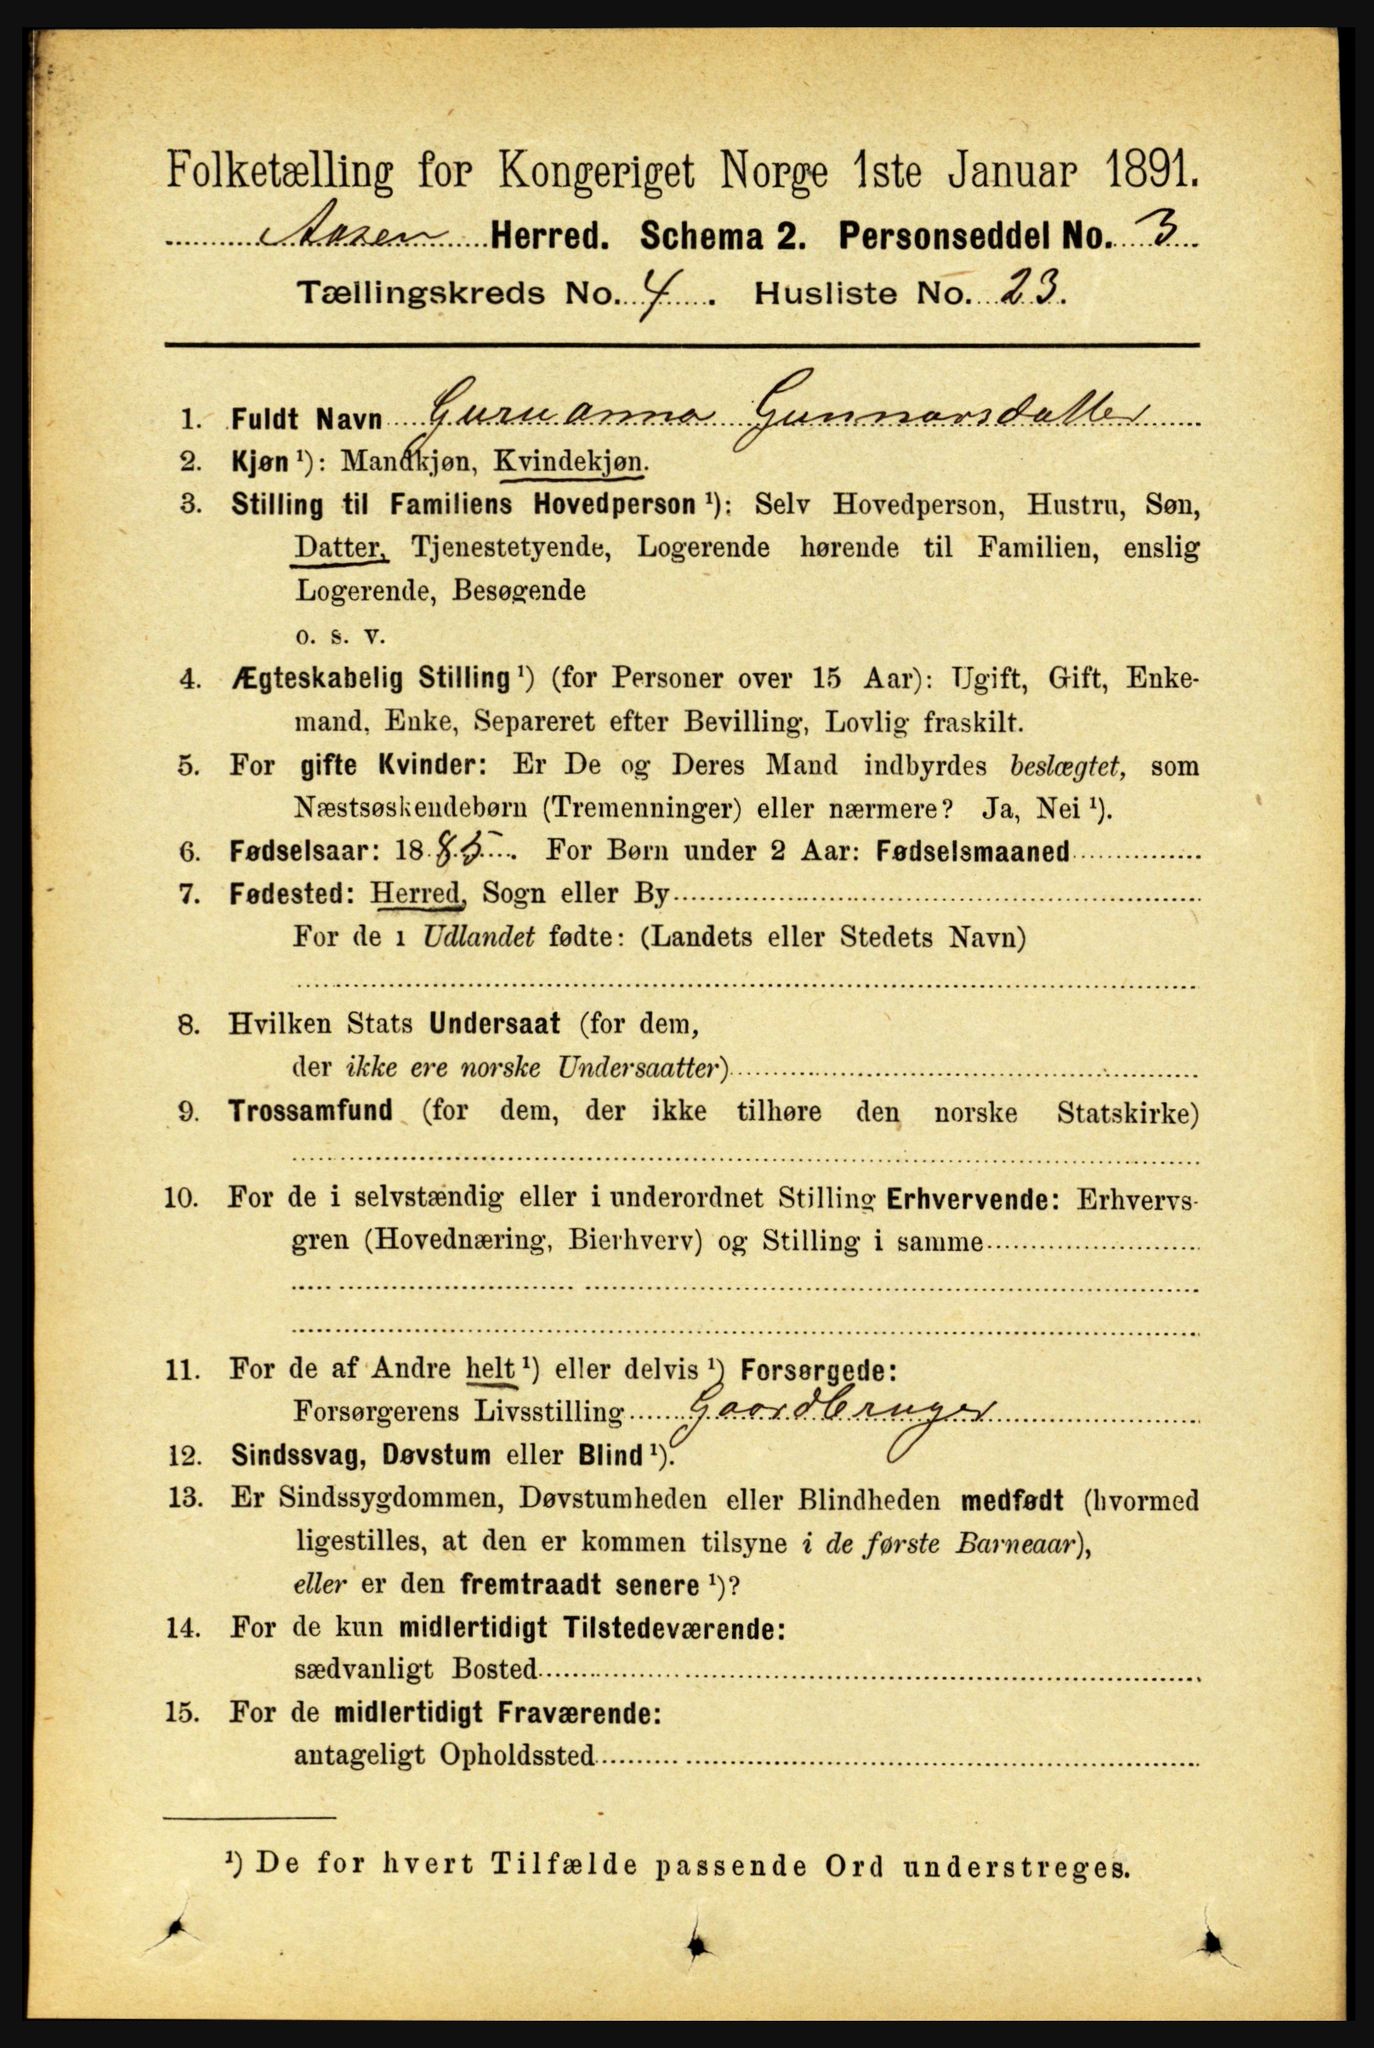 Folketælling for Kongeriget Norge 1ste Januar 1891.
Aasen Herred. Schema 2. Personseddel No. 3
Tællingskreds No. 4. Husliste No. 23.
1. Fuldt Navn Guruanna Gunnarsdatter
2. Kjøn ¹): Mandkjøn, Kvindekjøn.
3. Stilling til Familiens Hovedperson ¹): Selv Hovedperson, Hustru, Søn,
Datter, Tjenestetyende, Logerende hørende til Familien, enslig
Logerende, Besøgende
o. s. v.
4. Ægteskabelig Stilling ¹) (for Personer over 15 Aar): Ugift, Gift, Enke-
mand, Enke, Separeret efter Bevilling, Lovlig fraskilt.
5. For gifte Kvinder: Er De og Deres Mand indbyrdes beslægtet, som
Næstsøskendebørn (Tremenninger) eller nærmere? Ja, Nei ¹).
6. Fødselsaar: 1885. For Børn under 2 Aar: Fødselsmaaned
7. Fødested: Herred, Sogn eller By
For de i Udlandet fødte: (Landets eller Stedets Navn)
8. Hvilken Stats Undersaat (for dem,
der ikke ere norske Undersaatter)
9. Trossamfund (for dem, der ikke tilhøre den norske Statskirke)
10. For de i selvstændig eller i underordnet Stilling Erhvervende: Erhvervs-
gren (Hovednæring, Bierhverv) og Stilling i samme
11. For de af Andre helt ¹) eller delvis ¹) Forsørgede:
Forsørgerens Livsstilling Gaardbruger
12. Sindssvag, Døvstum eller Blind ¹).
13. Er Sindssygdommen, Døvstumheden eller Blindheden medfødt (hvormed
ligestilles, at den er kommen tilsyne i de første Barneaar),
eller er den fremtraadt senere ¹)?
14. For de kun midlertidigt Tilstedeværende:
sædvanligt Bosted
15. For de midlertidigt Fraværende:
antageligt Opholdssted
¹) De for hvert Tilfælde passende Ord understreges.